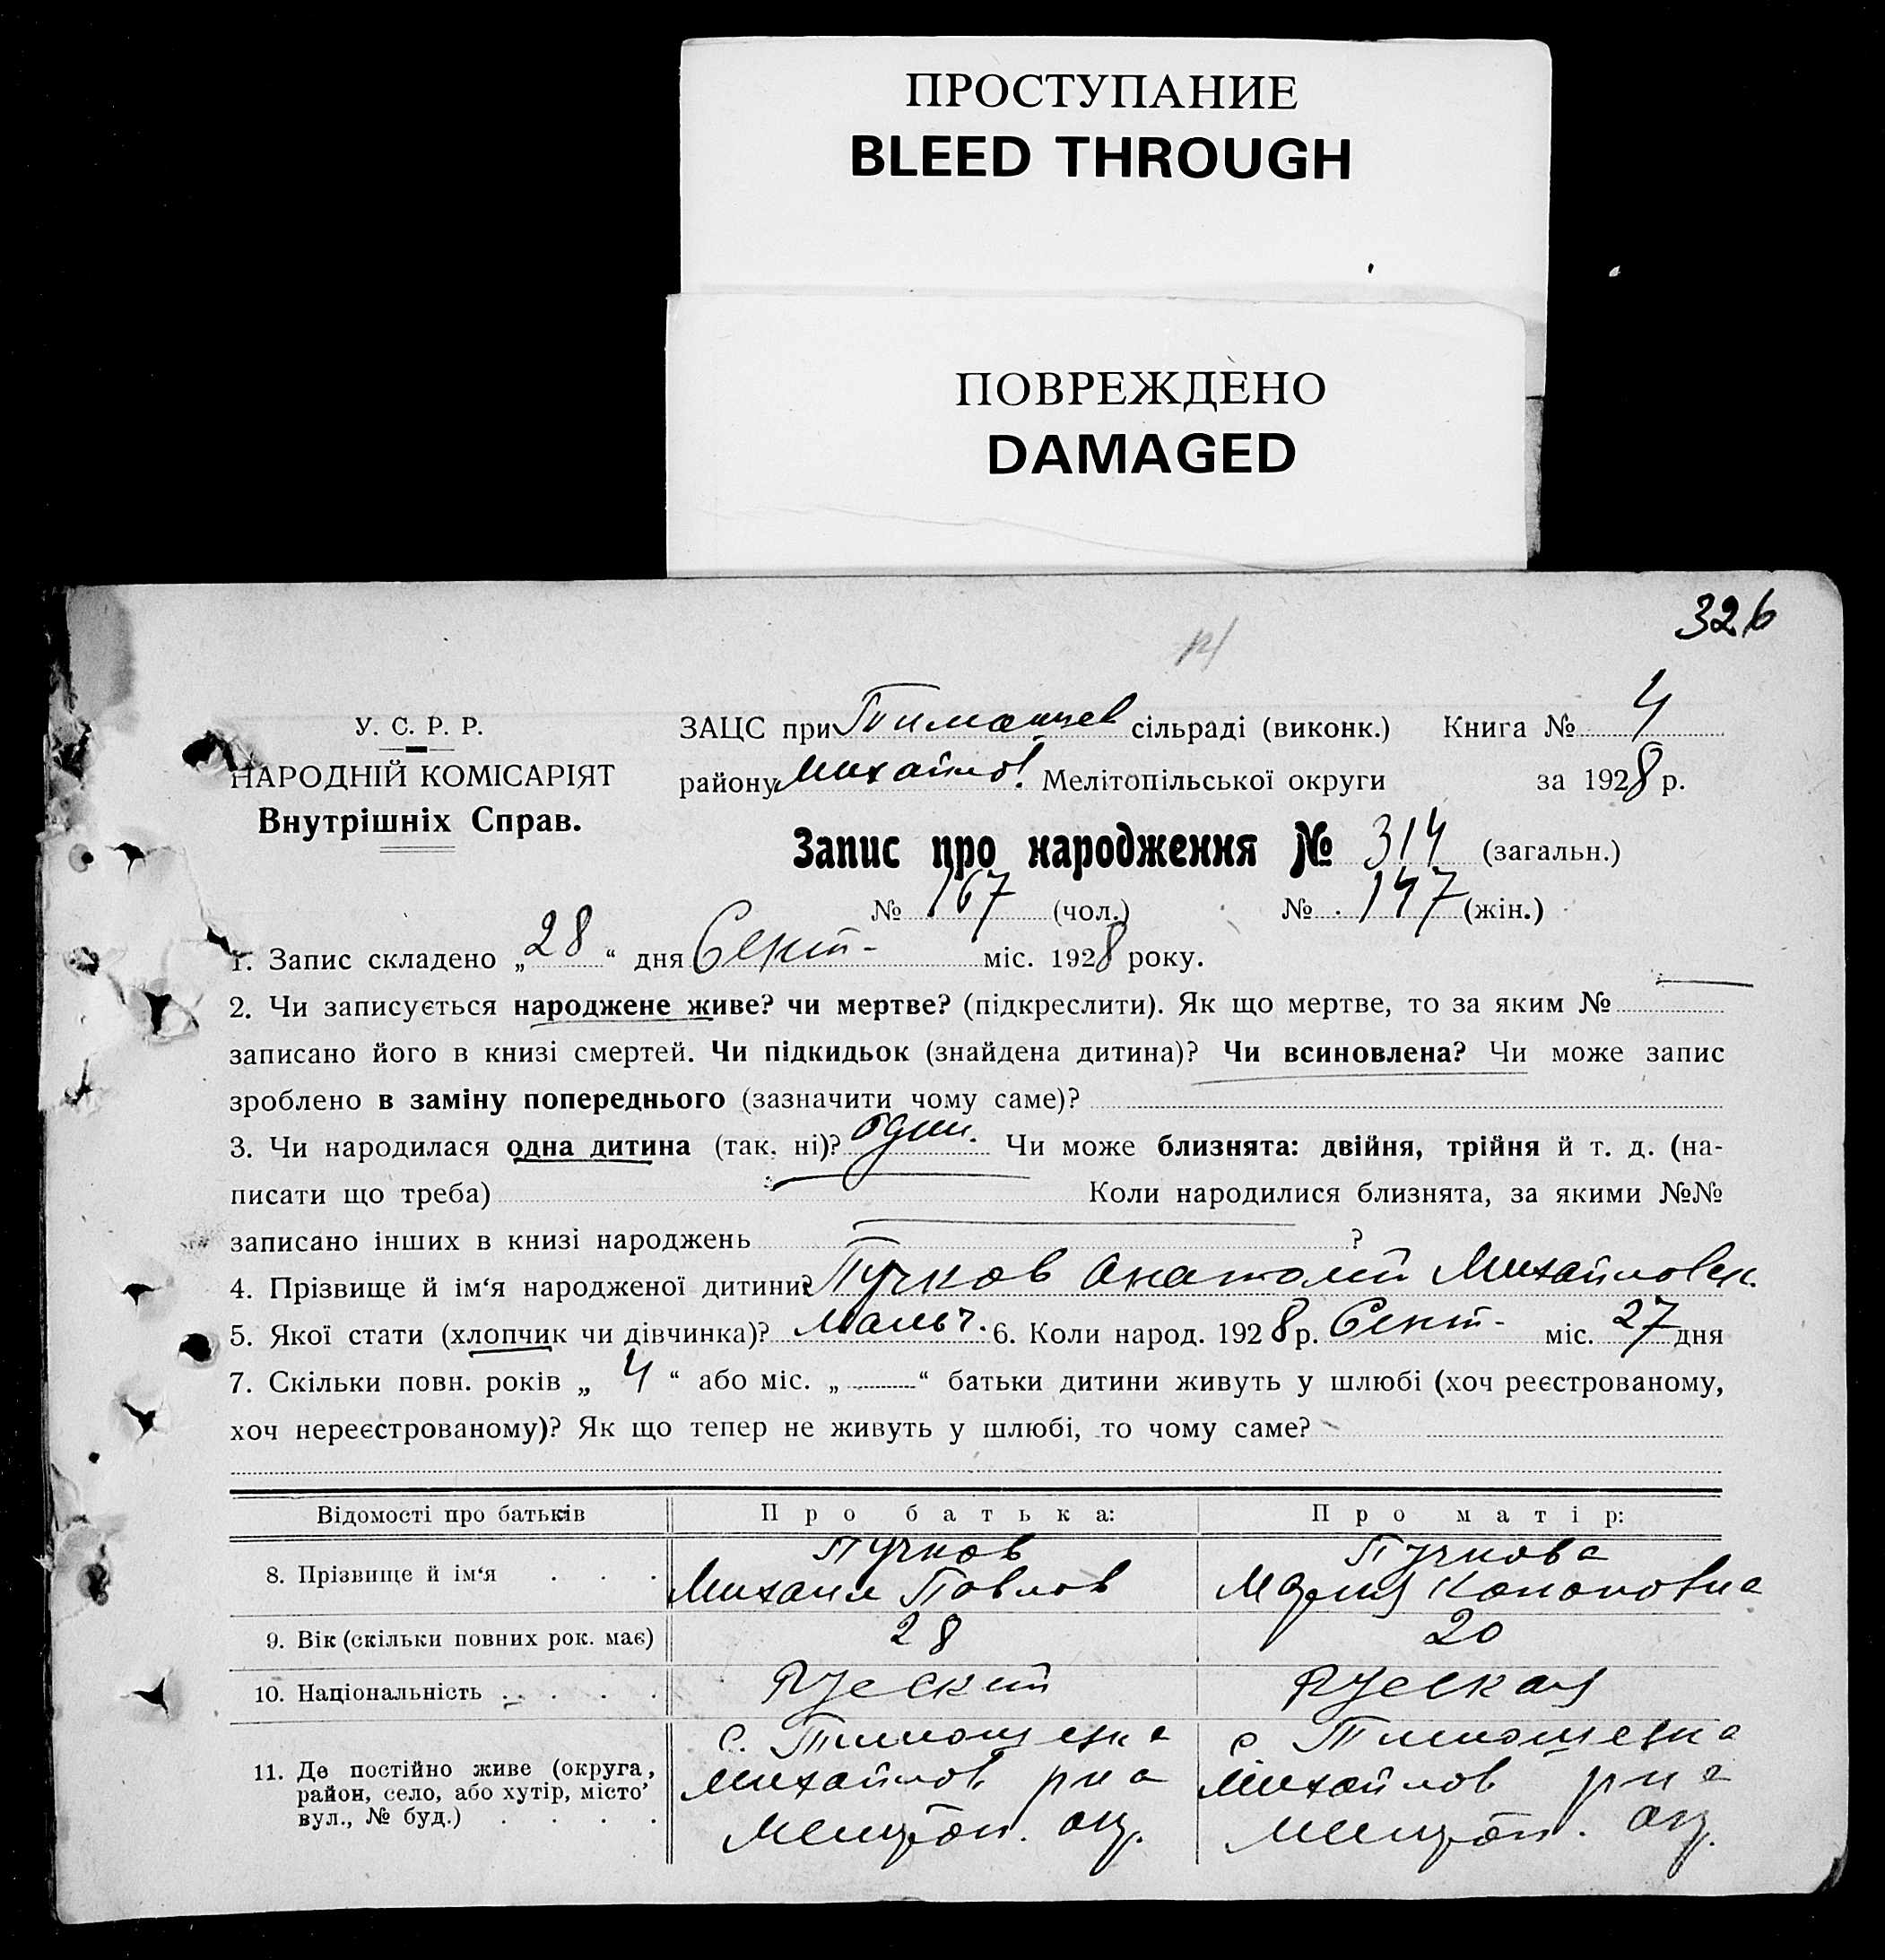 ПРОСТУПАНИЕ
BLEED THROUGH
ПОВРЕЖДЕНО
DAMAGED
326
У. С. Р. Р.
НАРОДНІЙ КОМІСАРІЯТ
Внутрішніх Справ.
ЗАЦС при Тимошев сільраді (виконк.) Книга № 4
району Михайлов. Мелітопільської округи за 1928 р.
Запис про народження № 314 (загальн.)
№ 167 (чол.) № 147 (жін.)
1. Запис складено „28“ дня Сент- міс. 1928 року.
2. Чи записується народжене живе? чи мертве? (підкреслити). Як що мертве, то за яким №
записано його в книзі смертей. Чи підкидьок (знайдена дитина)? Чи всиновлена? Чи може запис
зроблено в заміну попереднього (зазначити чому саме)?
3. Чи народилася одна дитина (так, ні)? один. Чи може близнята: двійня, трійня й т. д. (на-
писати що треба) Коли народилися близнята, за якими №№
записано інших в книзі народжень ?
4. Прізвище й ім‘я народженої дитини? Пучков Анатолий Михайлович.
5. Якої стати (хлопчик чи дівчинка)? Мальч. 6. Коли народ. 1928 р. Сент- міс. 27 дня
7. Скільки повн. років „4“ або міс. „ “ батьки дитини живуть у шлюбі (хоч реєстрованому,
хоч нереєстрованому)? Як що тепер не живуть у шлюбі, то чому саме?
Відомості про батьків Про батька: Про матір:
8. Прізвище й ім‘я . . . Пучков Пучкова
Михаил Павлов Мария Кононовна
9. Вік (скільки повних рок. має) 28 20
10. Національність . . . . Руский Руская
11. Де постійно живе (округа, район, село, або хутір, місто, вул., № буд.) . . . .
с. Тимошевка с Тимошевка
Михайлов рна Михайлов рна
Мелитоп. окр. Мелитоп. окр.